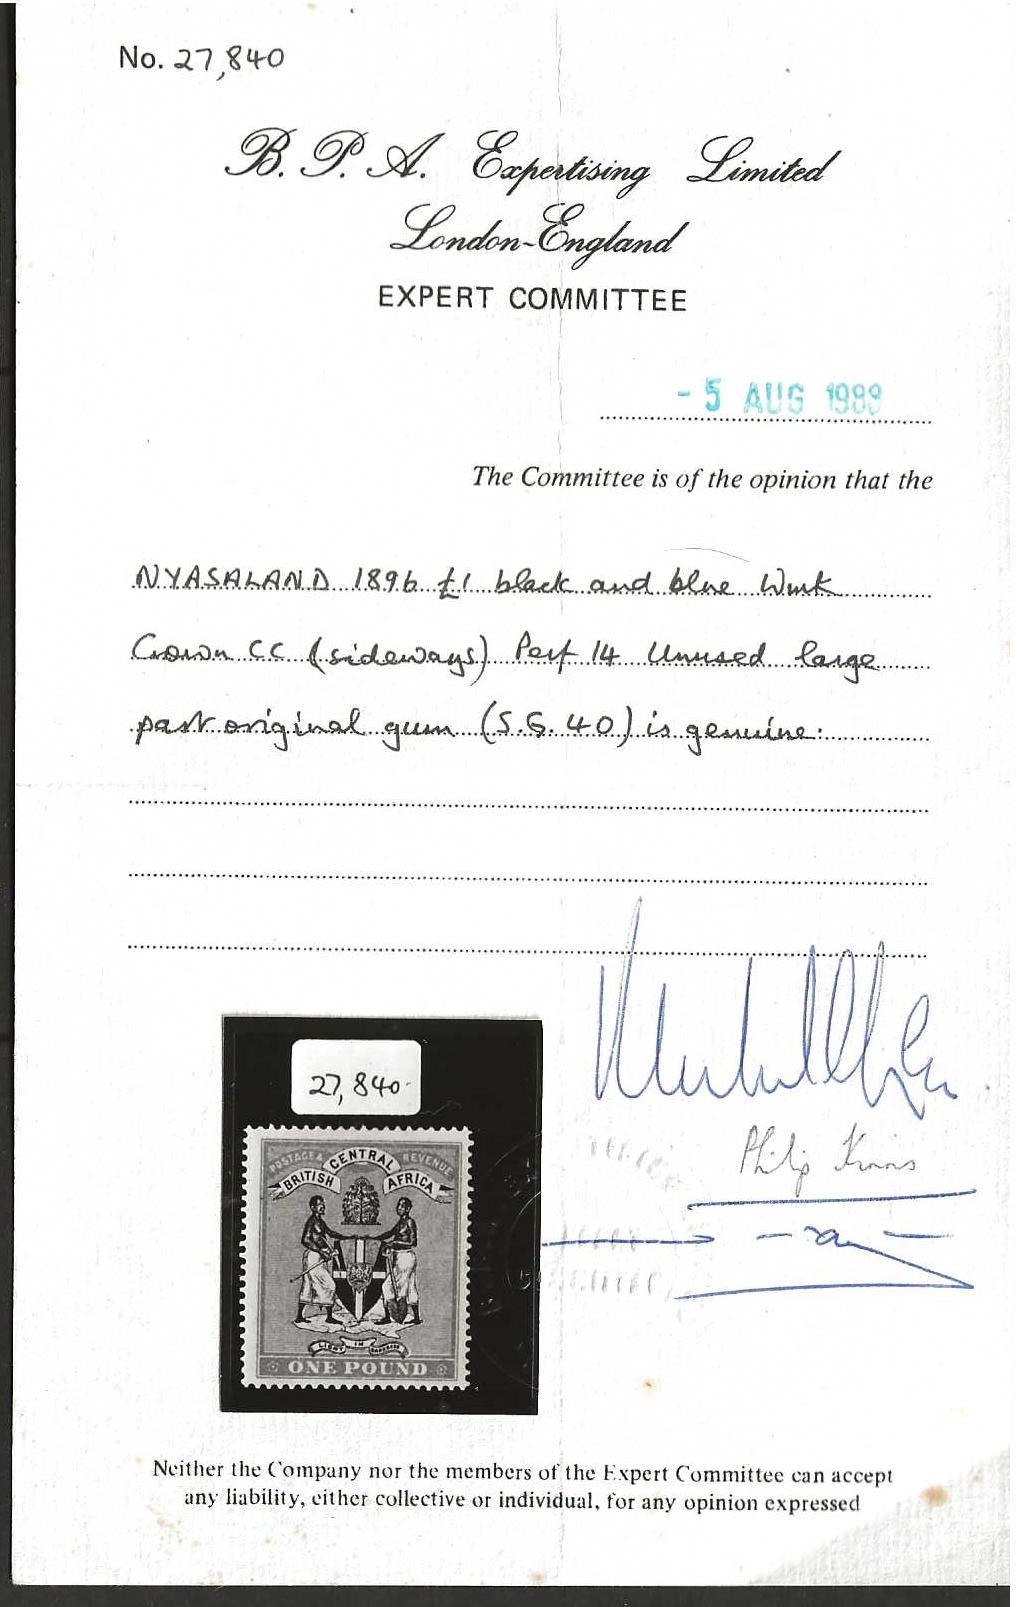 No. 27,840
B. P. A. Expertising Limited
London-England
EXPERT COMMITTEE
- 5 AUG 1988
The Committee is of the opinion that the
NYASALAND 1896 £1 black and blue Wmk
Crown CC (sideways) Perf 14 Unused large
part original gum (S.G. 40) is genuine.
27,840
POSTAGE & REVENUE
BRITISH CENTRAL AFRICA
LIGHT IN DARKNESS
ONE POUND
Philip
Neither the Company nor the members of the Expert Committee can accept
any liability, either collective or individual, for any opinion expressed